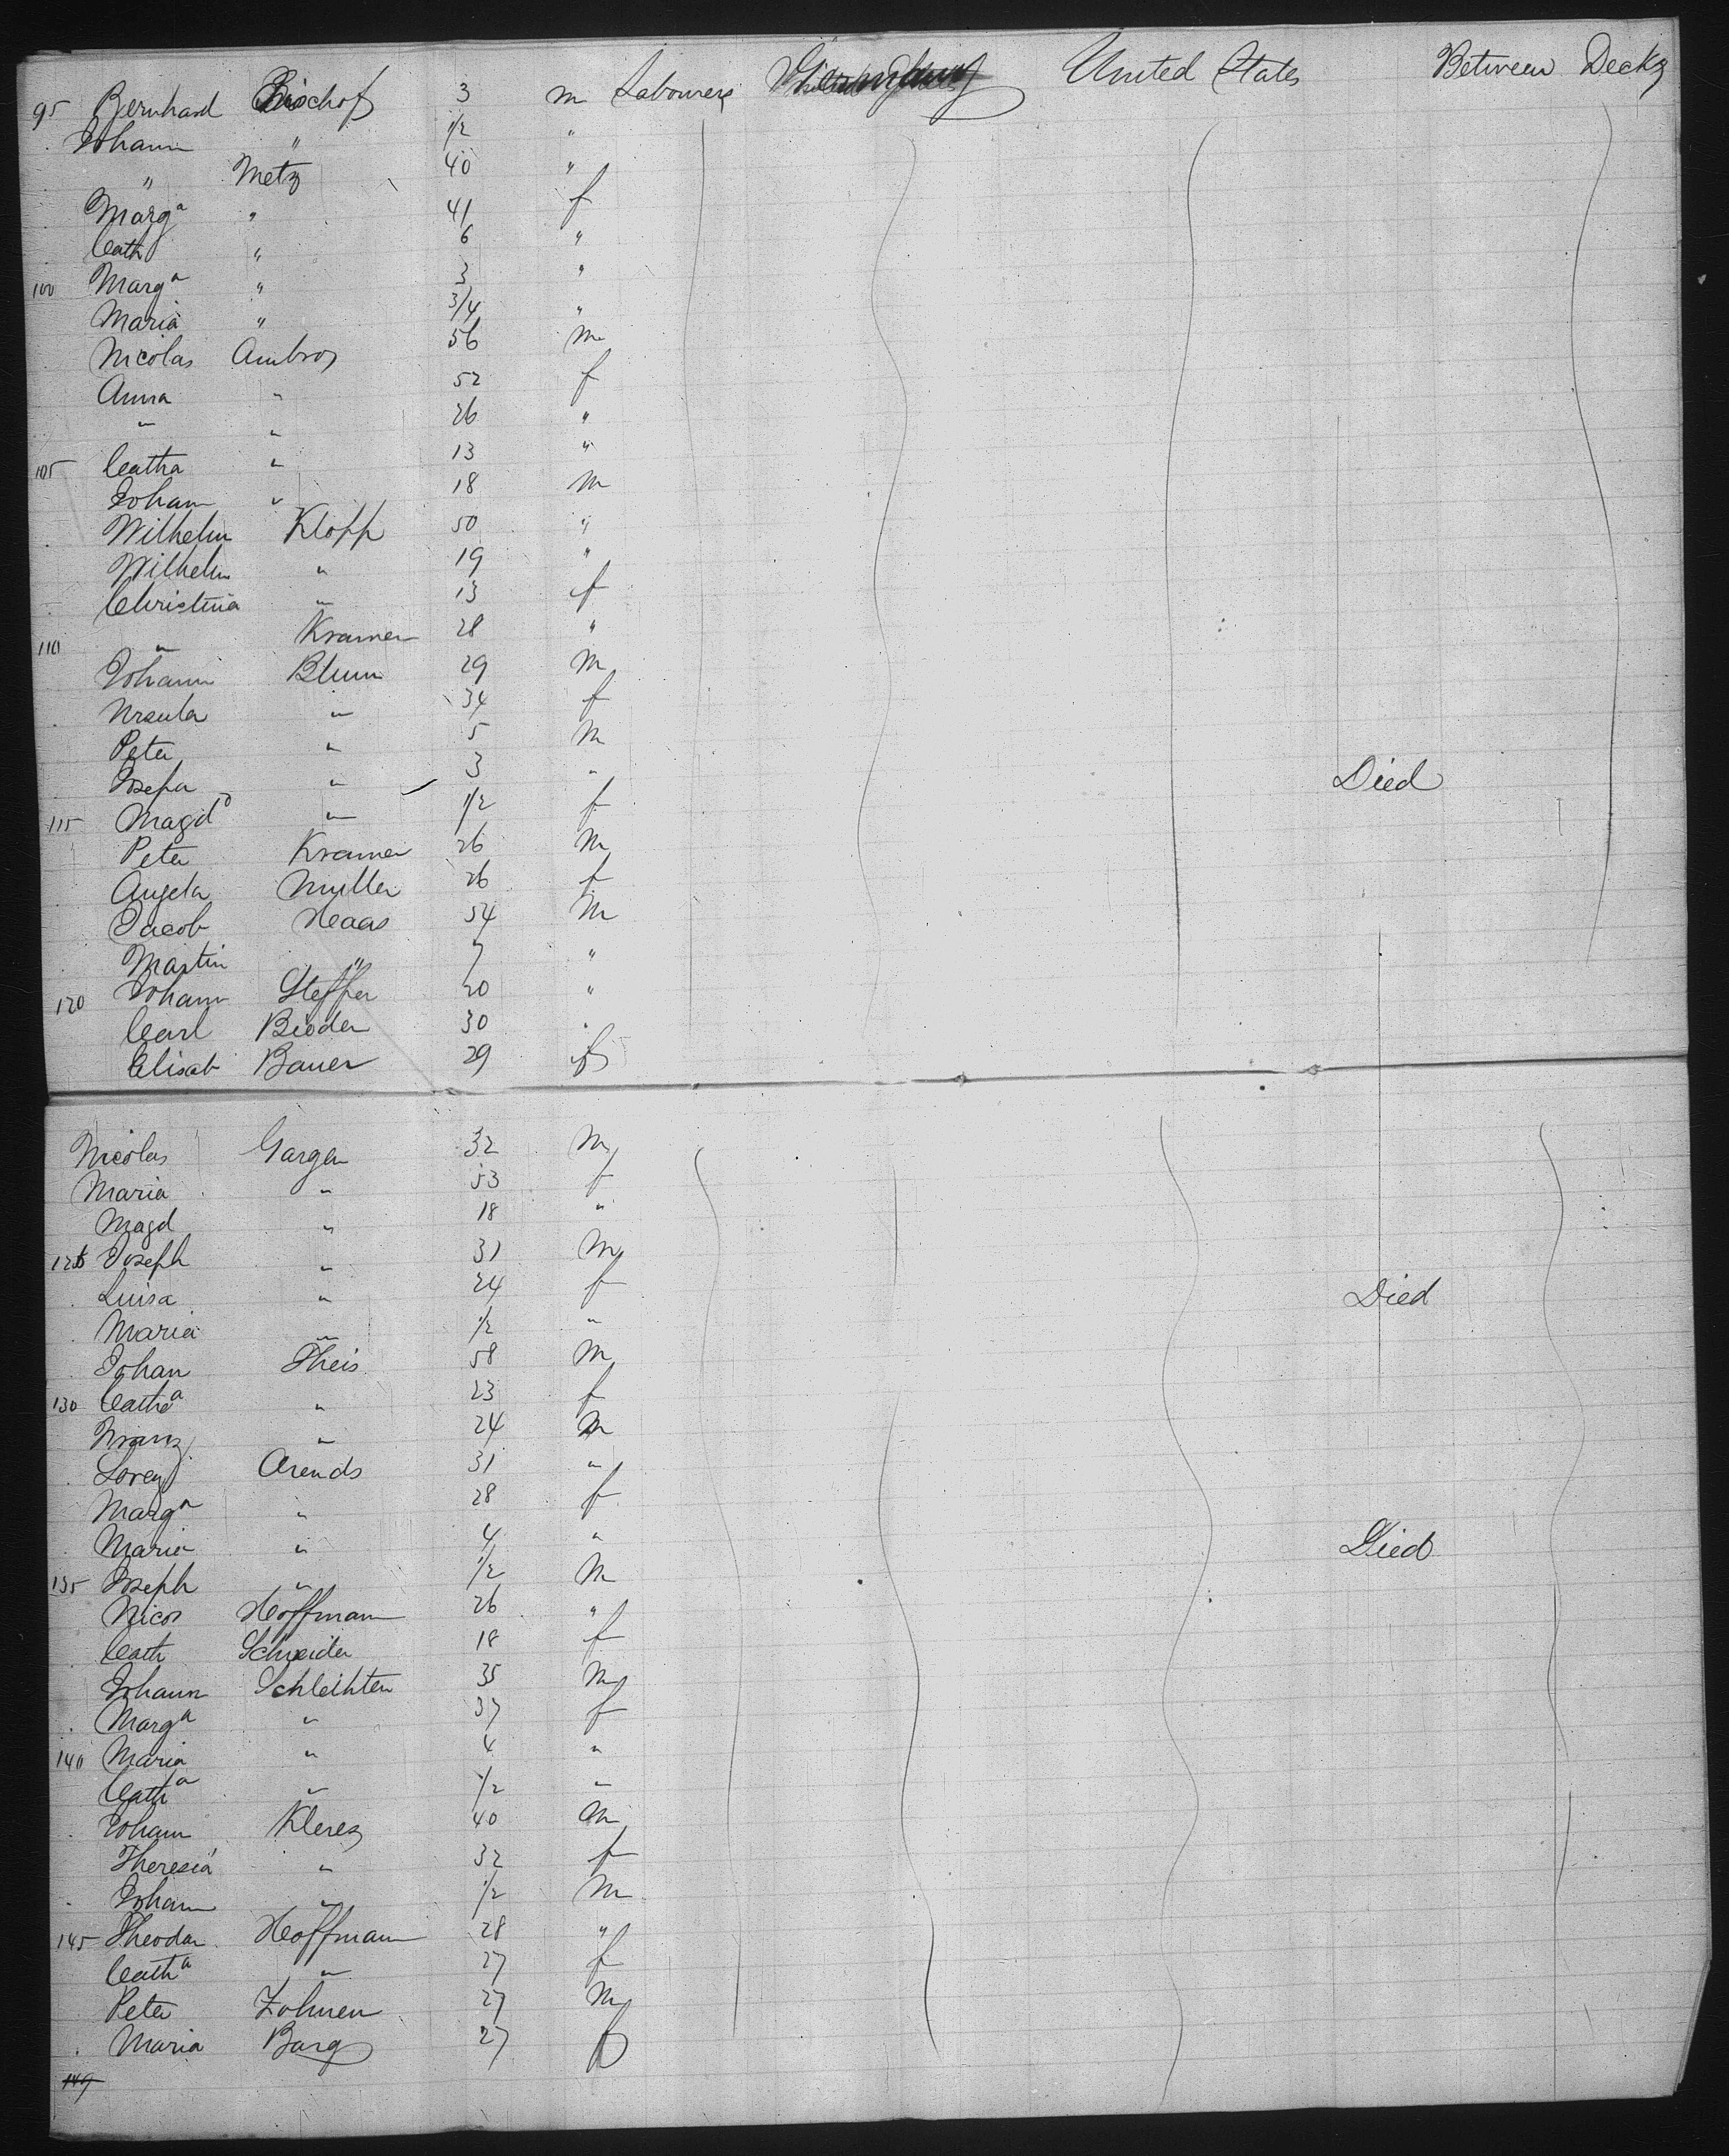 95 Bernhard Bischof 3 m Labourers Germany United States Between Decks
Johann " 1/2 "
" Metz 40 "
Marga " 41 f
Cath " 6 "
100 Marga " 3 "
Maria " 3/4 "
Nicolas Ambros 56 m
Anna " 52 f
" " 26 "
105 Catha " 13 "
Johann " 18 m
Wilhelm Klopp 50 "
Wilhelm " 19 "
Christina " 13 f
110 " Kramer 28 "
Johann Blum 29 m
Ursula " 34 f
Peter " 5 m
Josepha " 3 " Died
115 Magd " 1/2 f
Peter Kramer 26 m
Angela Muller 26 f
Jacob Haas 54 m
Martin " 7 "
120 Johann Steffen 20 "
Carl Bieder 30 "
Elisab Bauer 29 f
Nicolas Gargen 32 m
Maria " 53 f
Magd " 18 "
126 Joseph " 31 m
Luisa " 24 f Died
Maria " 1/2 "
Johan Theis 58 m
130 Catha " 23 f
Franz " 24 m
Lorenz Arends 31 "
Marga " 28 f
Maria " 4 " Died
135 Joseph " 1/2 m
Nicos Hoffmann 26 "
Cath Schneider 18 f
Johann Schleihten 35 m
Marga " 37 f
140 Maria " 4 "
Catha " 1/2 "
Johann Klerez 40 m
Theresia " 32 f
Johann " 1/2 m
145 Theodor Hoffmann 28 "
Catha " 27 f
Peter Zohnen 27 m
Maria Barg 27 f
149